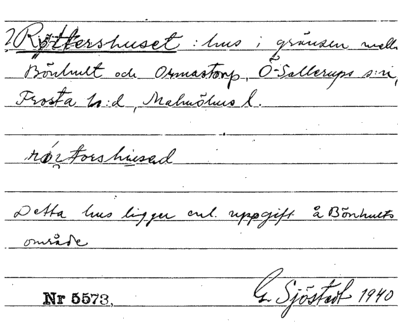 ?Röttershuset : hus i gränsen mella
Bönhult och Ormastorp, Ö. Sallerups s:n,
Frosta h:d, Malmöhus l.
Detta hus ligger enl. uppgift å Bönhults
område
Nr 5573. G. Sjöstedt 1940